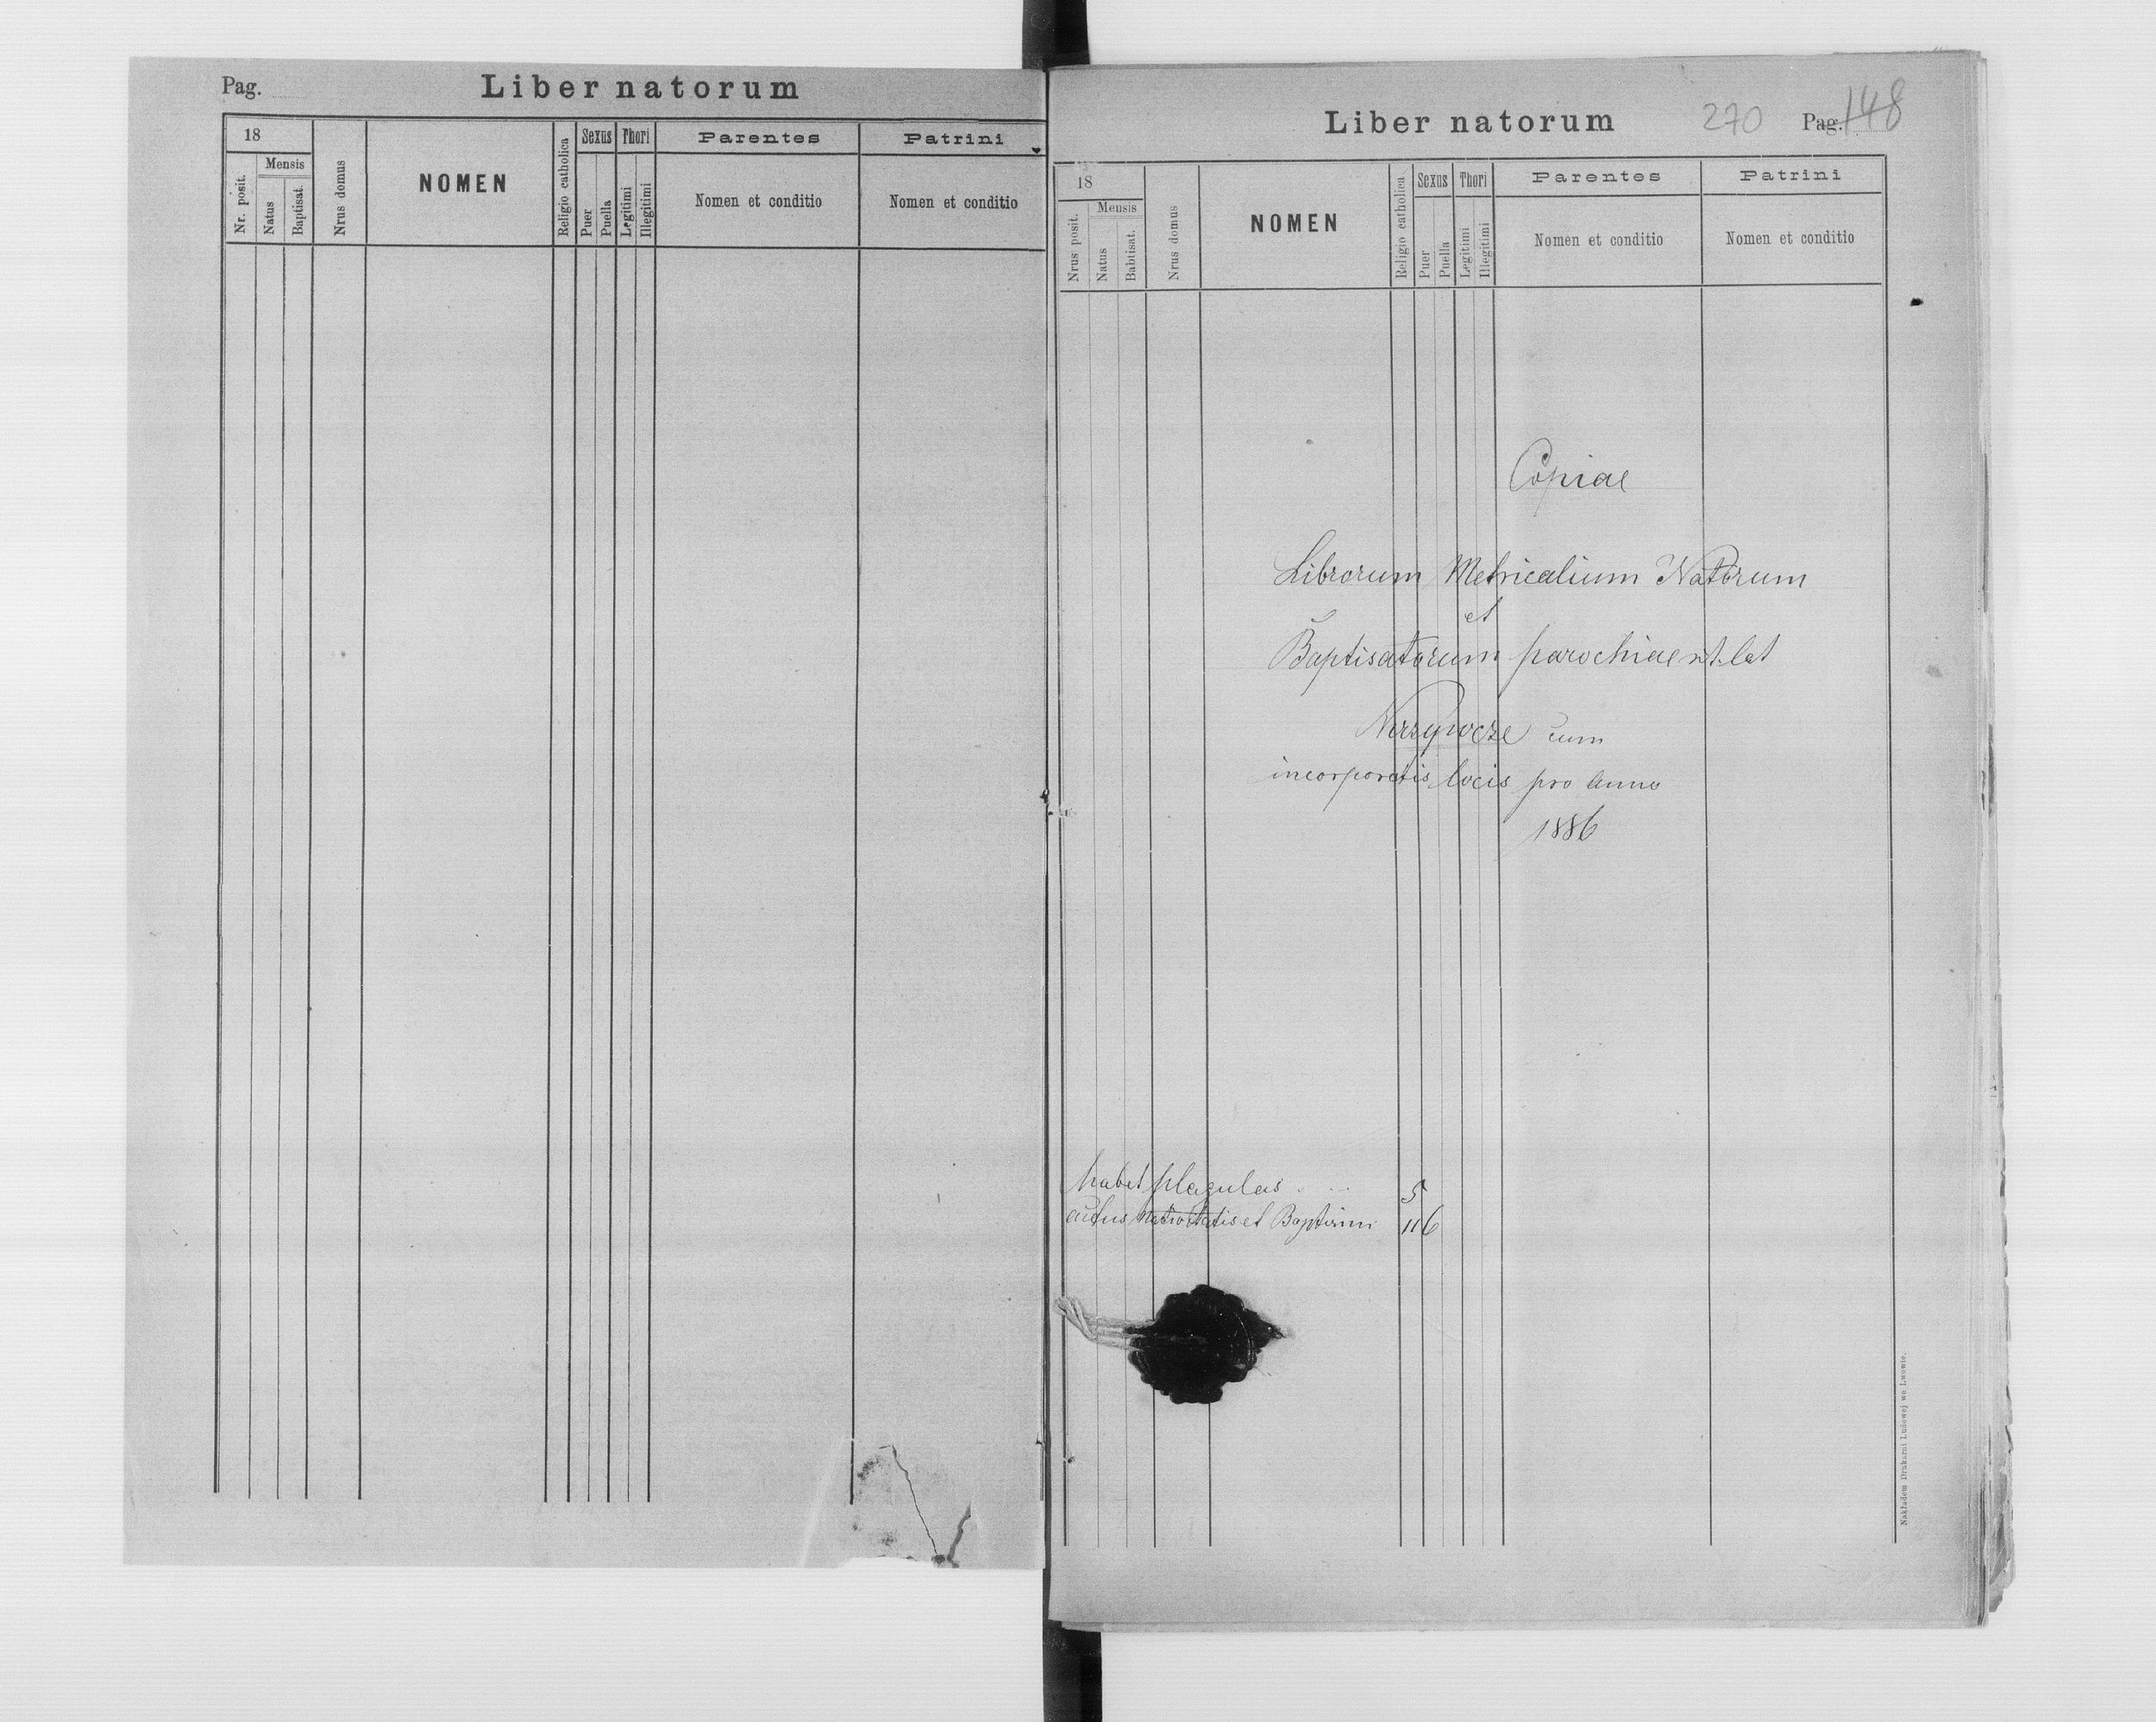 Pag.
Liber natorum
18
Nr. posit.
Mensis
Natus
Baptisat.
Nrus domus
NOMEN
Religio catholica
Sexus
Puer
Puella
Thori
Legitimi
Illegitimi
Parentes
Nomen et conditio
Patrini
Nomen et conditio
Liber natorum
270
Pag. 148
18
Nrus posit.
Mensis
Natus
Babtisat.
Nrus domus
NOMEN
Religio catholica
Sexus
Puer
Puella
Thori
Legitimi
Illegitimi
Parentes
Nomen et conditio
Patrini
Nomen et conditio
Copiae
Librorum Metricalium Natorum
et
Baptisatorum parochiae rt. lat
cum
incorporatis locis pro anno
1886
habet plagulas 5
actus nativitatis et Baptismi 116
Nakładem Drukarni Ludowej we Lwowie.